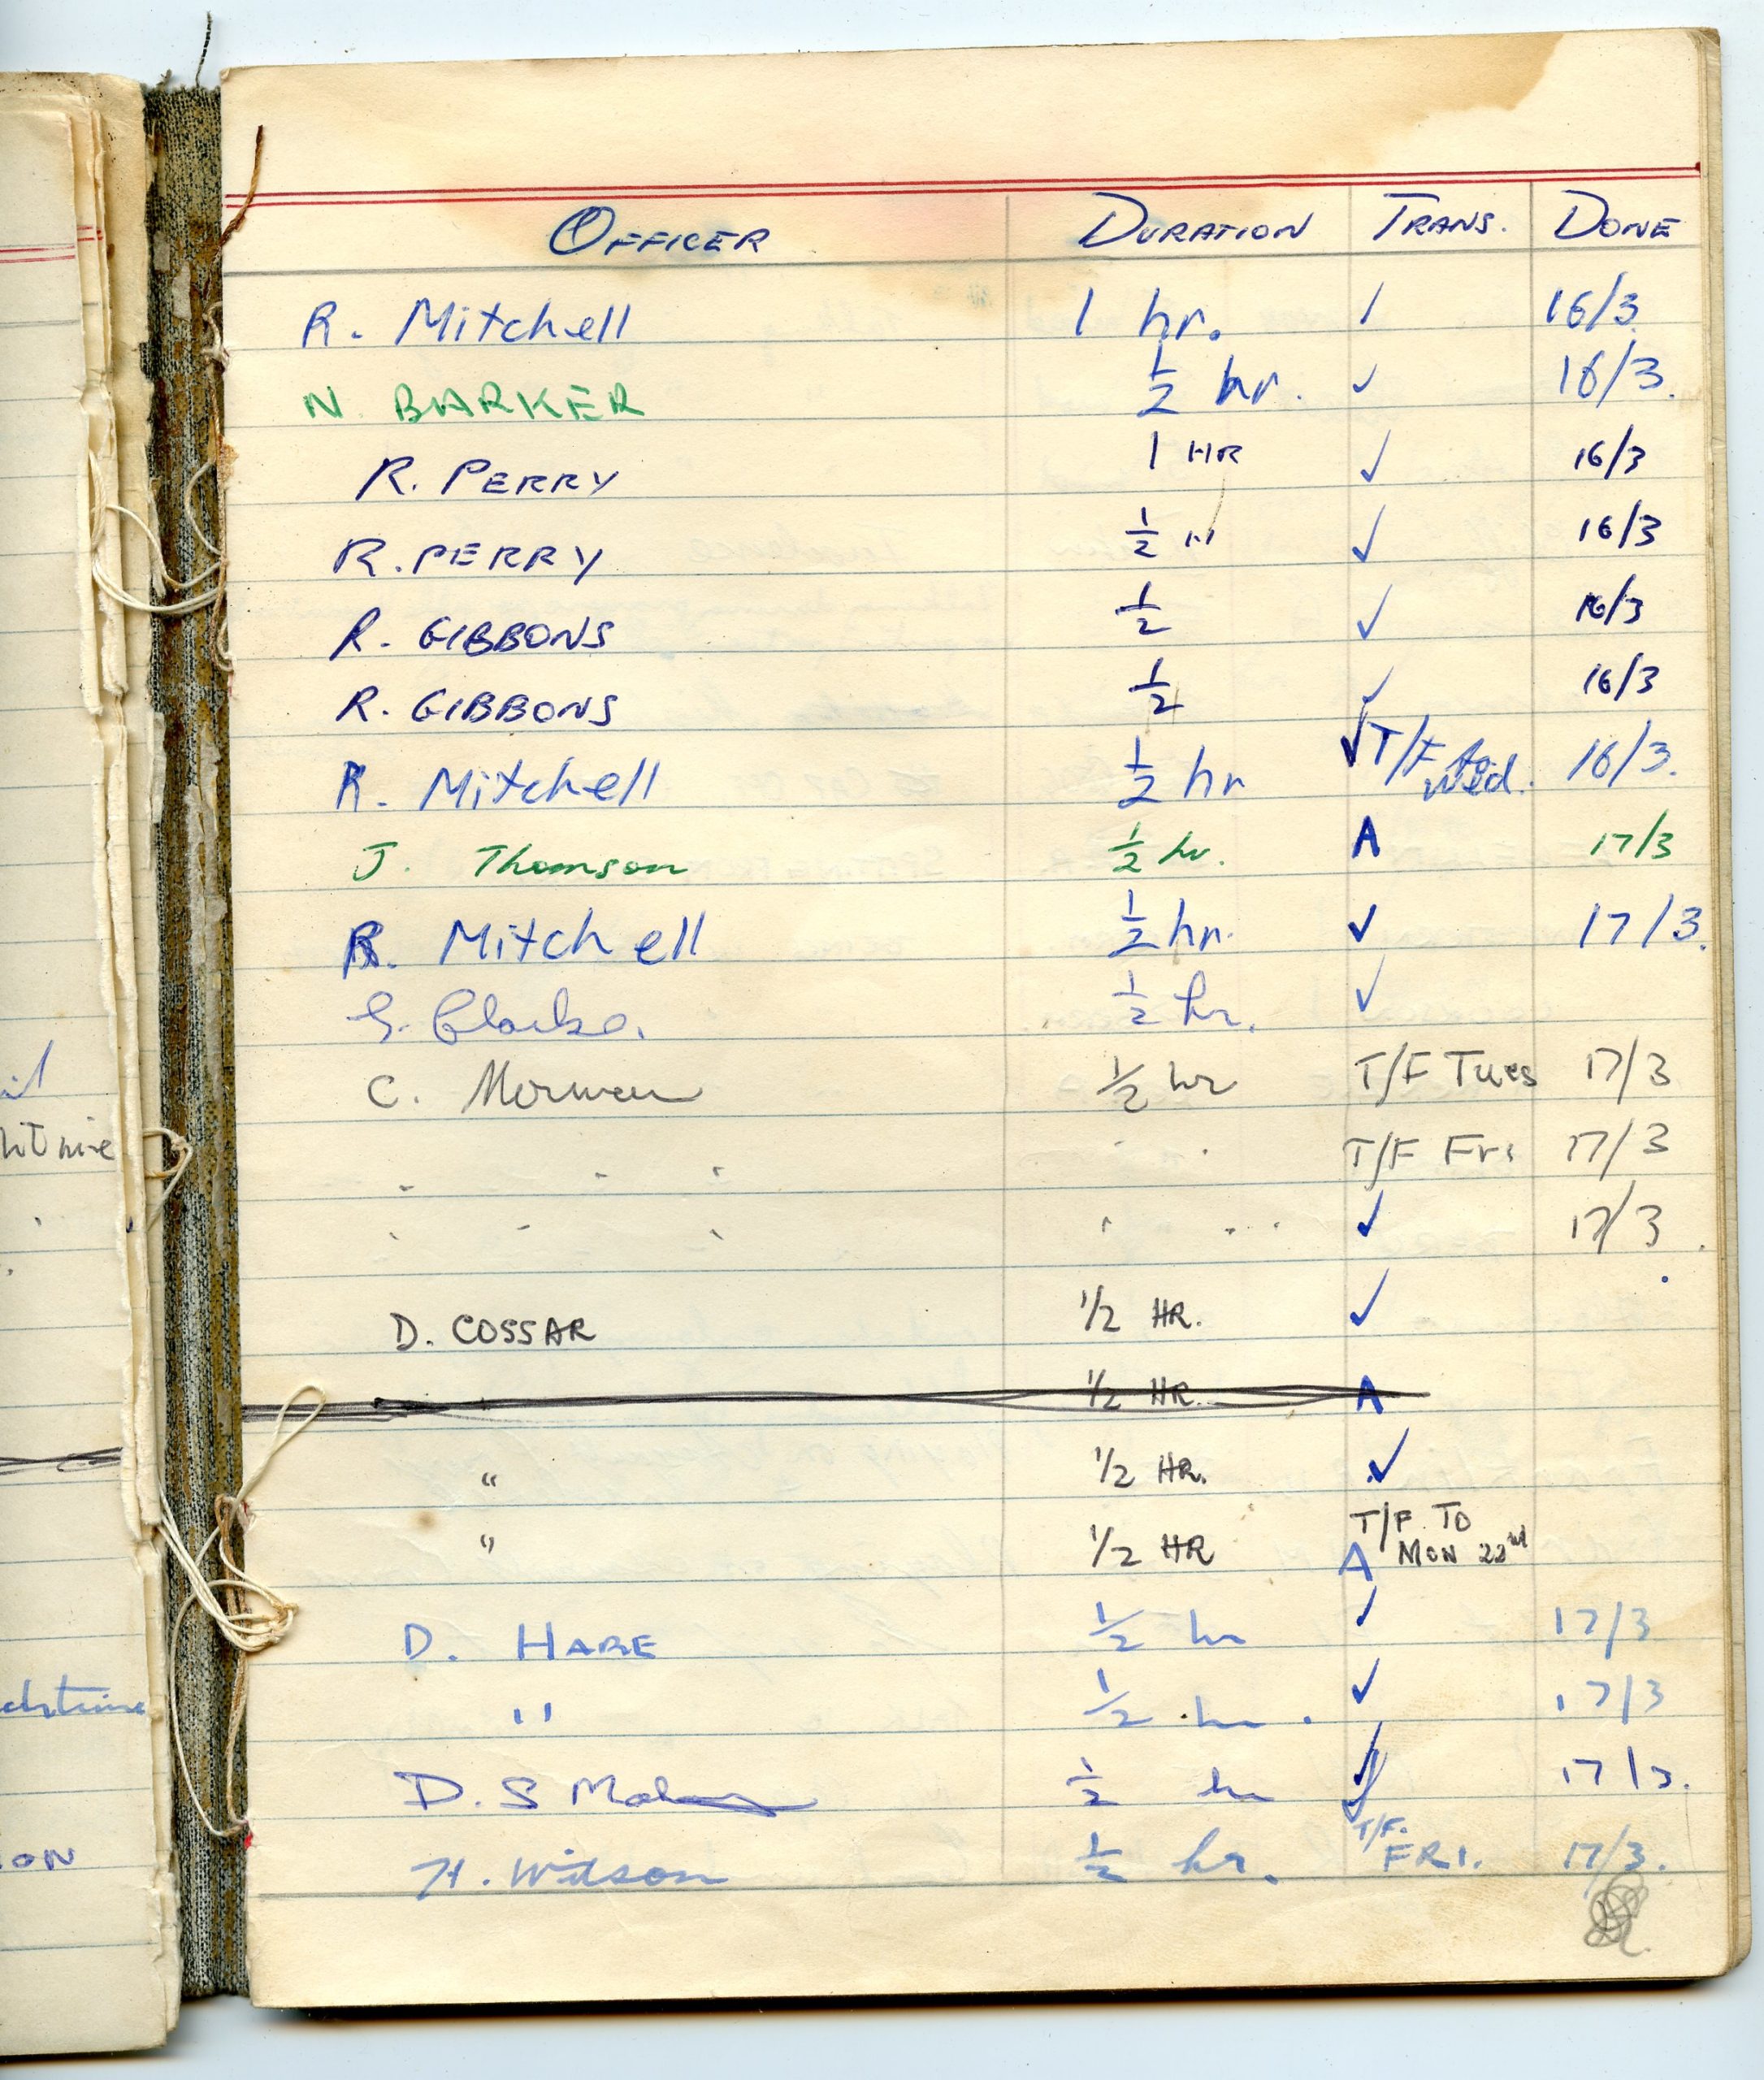 OFFICER DURATION TRANS. DONE
R. Mitchell 1 hr. / 16/3
N BARKER ½ hr. ✓ 16/3.
R. PERRY 1 HR ✓ 16/3
R. PERRY ½ " ✓ 16/3
R. GIBBONS ½ ✓ 16/3
R. GIBBONS ½ ✓ 16/3
R. Mitchell ½ hr ✓ T/F to Wed. 16/3.
J. Thomson ½ hr. A 17/3
R. Mitchell ½ hr. ✓ 17/3.
G. Clarke. ½ hr. ✓
C. ½ hr T/F Tues 17/3
" " " " " T/F Fri 17/3
" " " " " ✓ 17/3
D. COSSAR 1/2 HR. ✓
" 1/2 HR. A
" 1/2 HR. ✓
" 1/2 HR T/F TO MON 22nd A
D. HARE ½ hr ✓ 17/3
" ½ hr. ✓ 17/3
D. S ½ hr ✓ 17/3.
H. Wilson ½ hr. T/F. FRI. 17/3.
ON